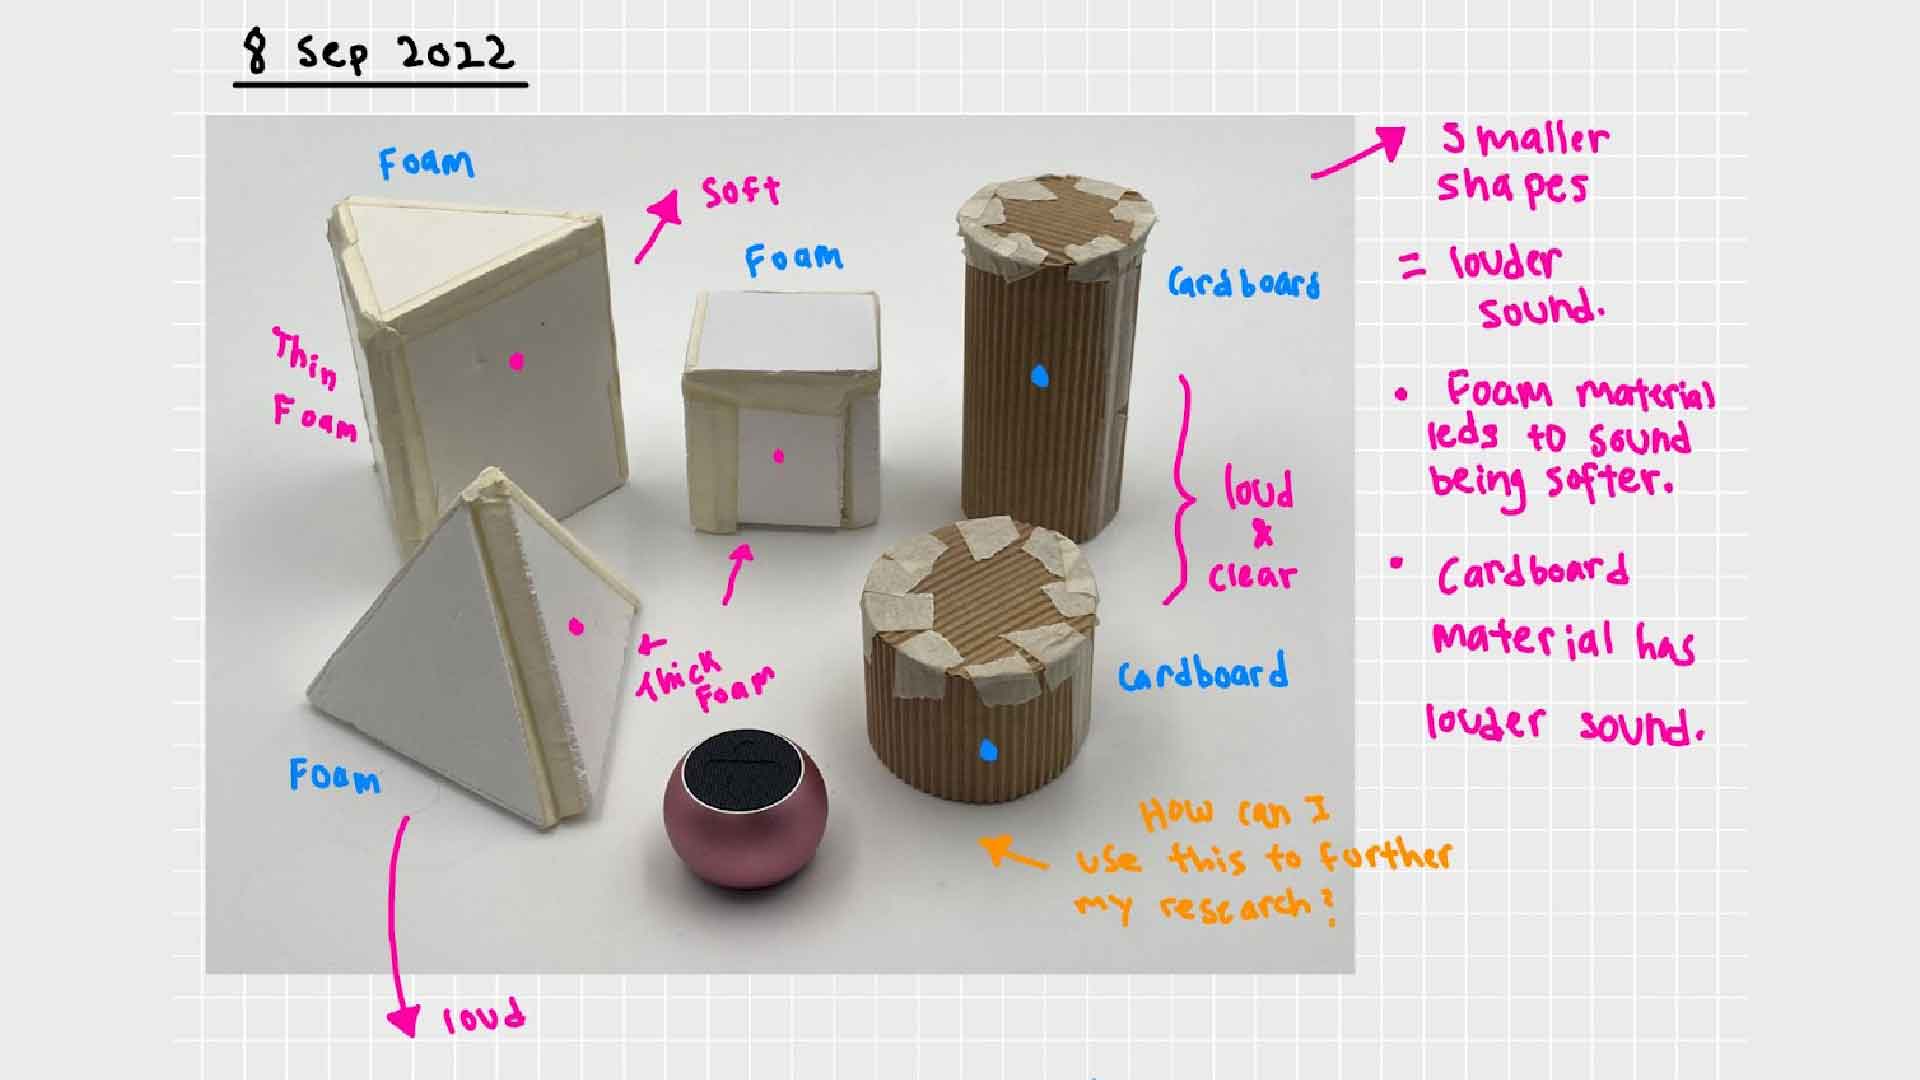 8 Sep 2022
Foam
Soft
Foam
Cardboard
Thin
Foam
Thick
Foam
Foam
loud
loud
&
clear
Cardboard
How can I
use this to further
my research?
Smaller
shapes
= louder
sound.
• Foam material
leds to sound
being softer.
• Cardboard
material has
louder sound.